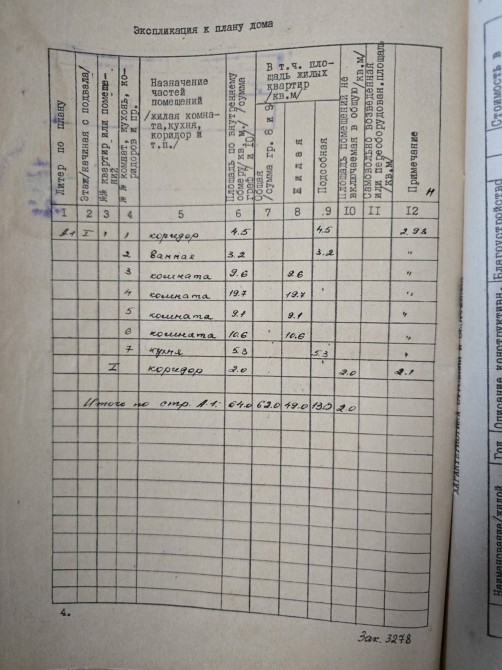 Экспликация к плану дома
Литер по плану
Этаж/начиная с подвала/
№№ квартир или помещений
№ № комнат, кухонь, коридоров и пр.
Назначение
частей
помещений
/жилая комна-
та,кухня,
коридор и
т.п./
Площадь по внутреннему
обмеру/кв.м./ /сумма
граф 7 и 10/
В т.ч. пло-
щадь жилых
квартир
/кв.м/
Общая
/сумма гр. 8 и 9/
Жилая
Подсобная
Площадь помещений не
включаемая в общую/кв.м/
Самовольно возведенная
или переоборудован.площадь
/кв.м/
Примечание
Н
1 2 3 4 5 6 7 8 9 10 11 12
А1 I 1 1 коридор 4.5 4.5 2.93
2 ванная 3.2 3.2 "
3 комната 9.6 9.6 "
4 комната 19.7 19.7 "
5 комната 9.1 9.1 "
6 комната 10.6 10.6 "
7 кухня 5.3 5.3 "
I коридор 2.0 2.0 2.1
Итого по стр. А1: 64.0 62.0 49.0 13.0 2.0
4.
Зак. 3278
Стоимость в
Благоустройство
Описание конструктивн.
Год
Наименование/жилой